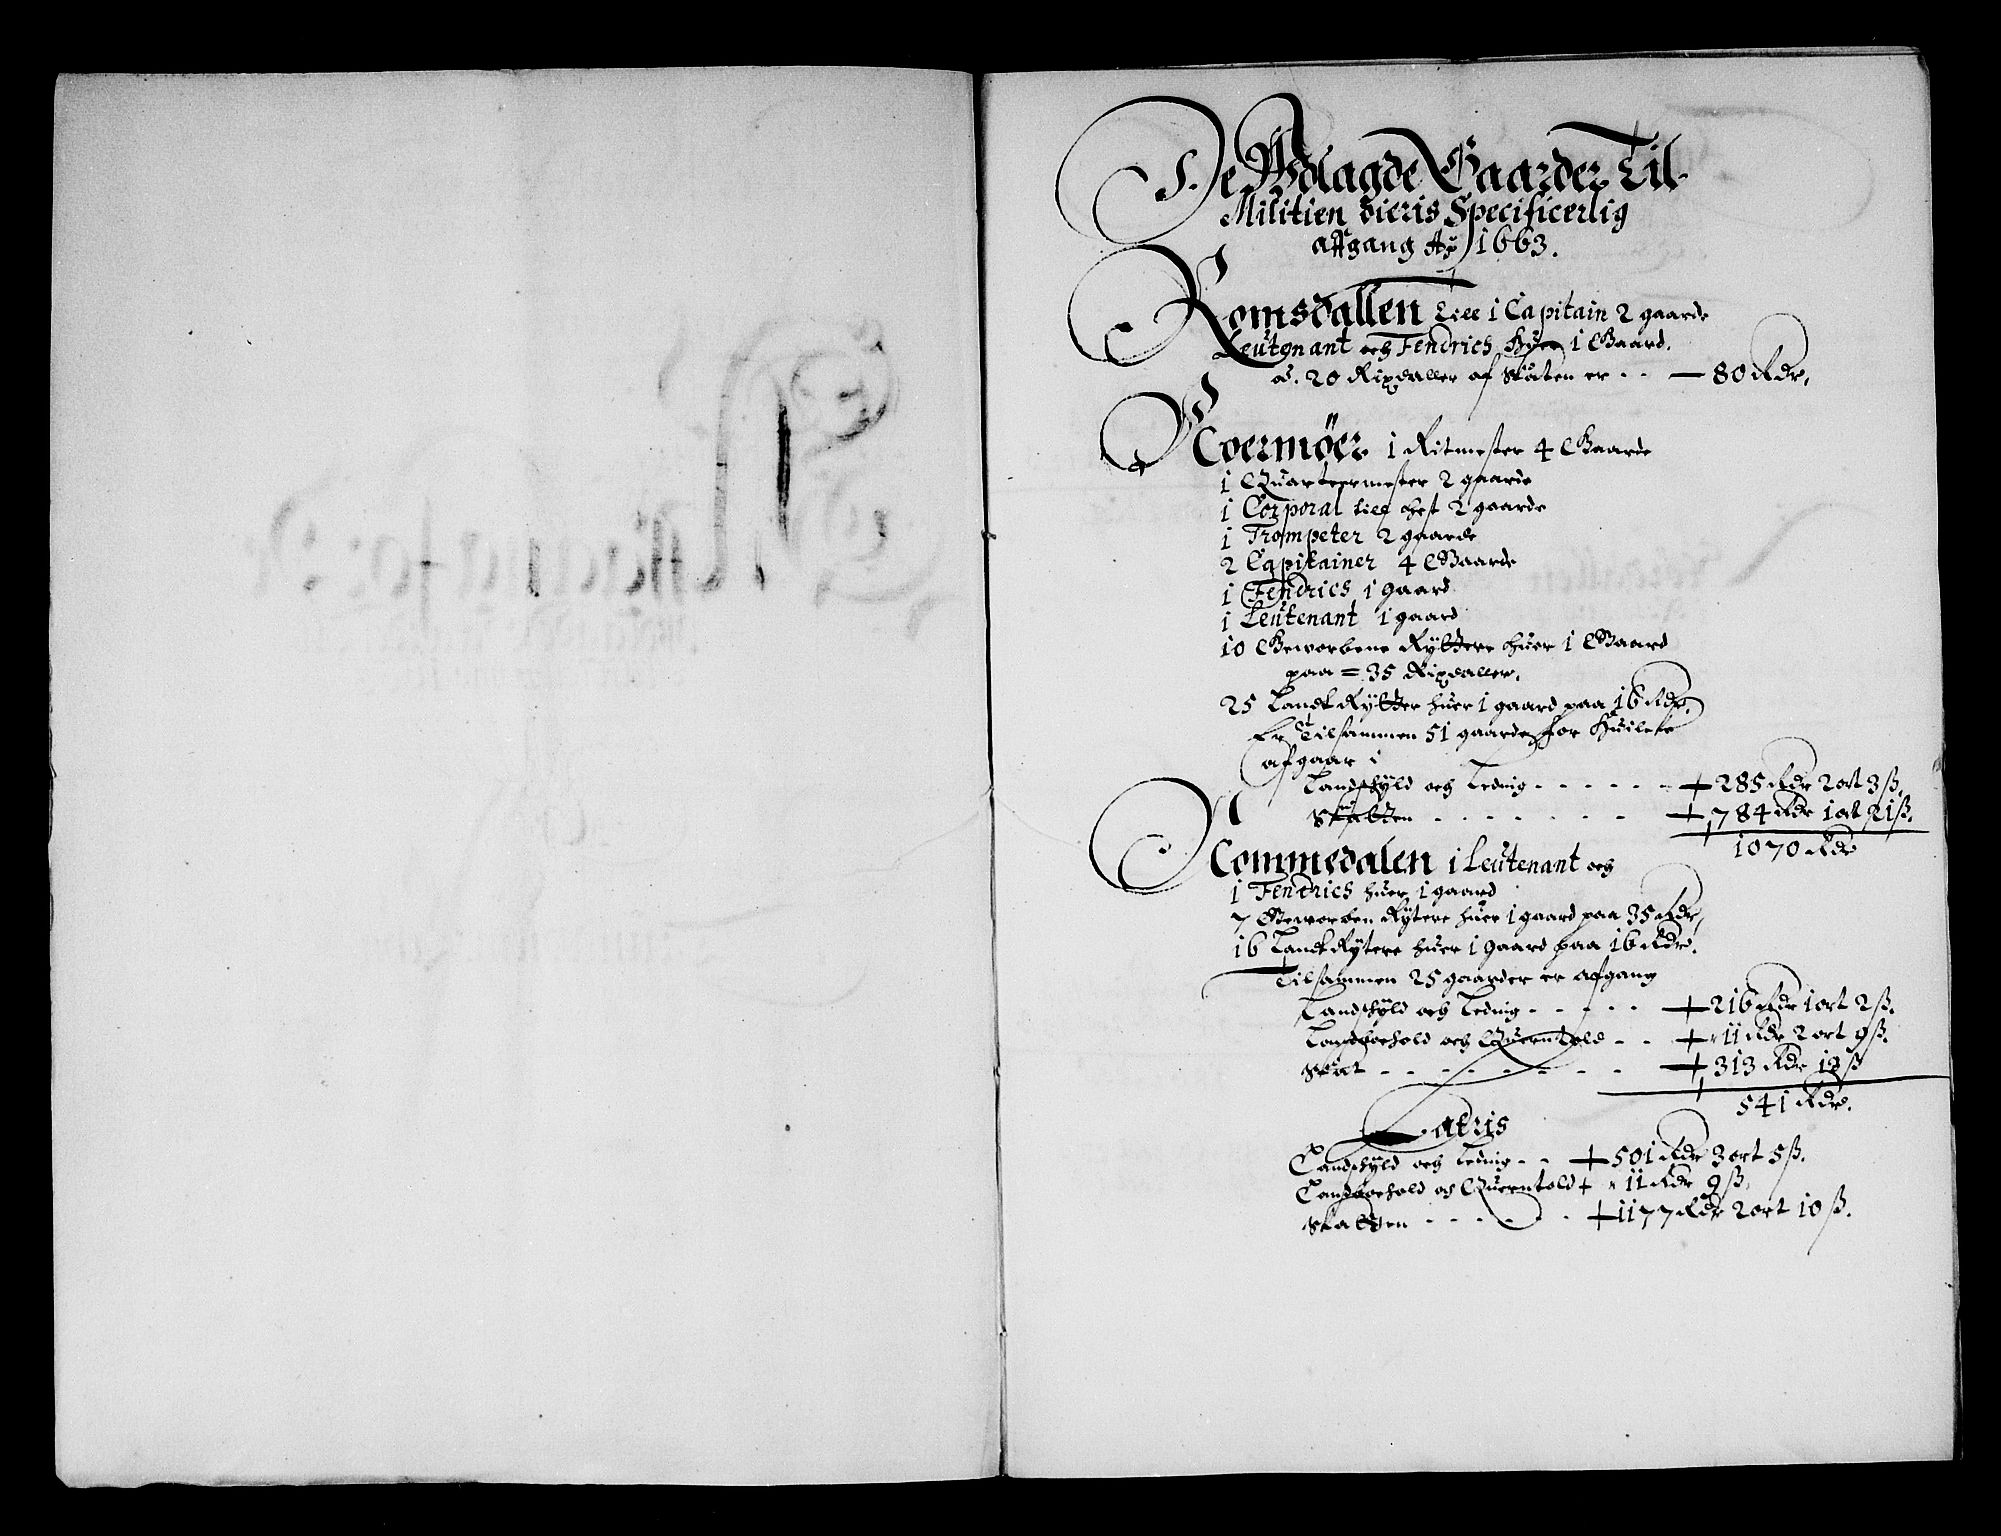 De Udlagde Gaarder Til
Militien dieris Specificerlig
affgang A° 1663.
Romsdallen till 1 Capitain 2 gaarde
Leutenant och Fendrich Huer 1 Gaard.
a. 20 Rixdaller af Skaten er - - 80 Rdr.
Noermøer 1 Ritmester 4 Gaarde
1 Quarteermester 2 gaarde
1 Corporal till hest 2 gaarde
1 Trompeter 2 gaarde
2 Capitainer 4 Gaarde
1 Fendrich 1 gaard
1 Leutenant 1 gaard
10 Geworbene Rÿttere huer 1 Gaard
paa = 35 Rixdaller.
25 Landt Rÿtter huer 1 gaard paa 16 Rdr.
Er Tilsammen 51 gaarde for Huilcke
afgaar i
Landschÿld och Leding - - - - - 285 Rdr 2 ort 3 ß.
Skatten - - - - - - - 784 Rdr 1 ort 21 ß.
1070 Rdr
Nommedalen 1 Leutenant och
1 Fendrich huer 1 gaard
7 Geworben Rÿtere huer 1 gaard paa 35 Rdr,
16 Landt Rÿtere huer 1 gaard paa 16 Rdr.
Tilsammen 25 gaarder er afgang
Landschÿld och Leding - - - - - 216 Rdr 1 ort 2 ß.
Landboehold och Querntold - - 11 Rdr 2 ort 9 ß.
Skat - - - - - - - - 313 Rdr 13 ß
541 Rdr.
Latris
Landschÿld och Leding - - 501 Rdr 3 ort 5 ß.
Landboehold och Querntold 11 Rdr 9 ß.
Skatten - - - - - 1177 Rdr 2 ort 10 ß.